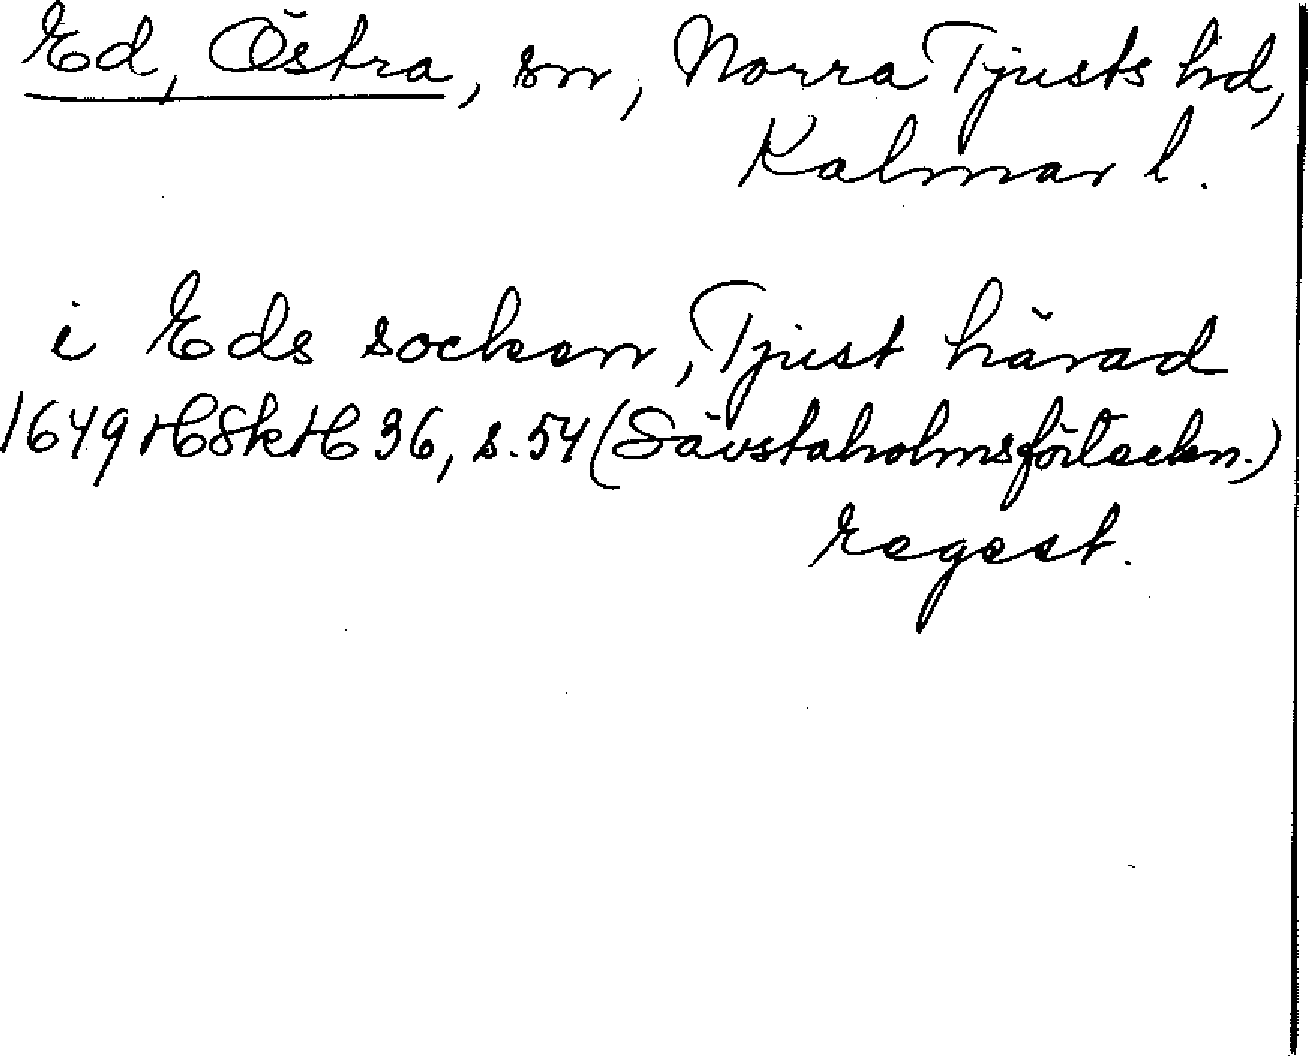 Ed, Östra, sn, Norra Tjusts hd,
Kalmar l.
i Eds socken, Tjust härad
1649 HSkH 36, s. 54 (Sävstaholmsförteckn.)
regest.